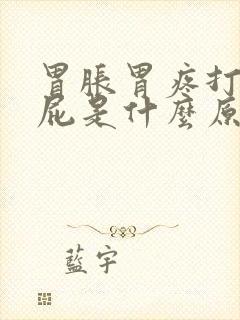 胃脹胃疼打
屁是什麼原
藍宇